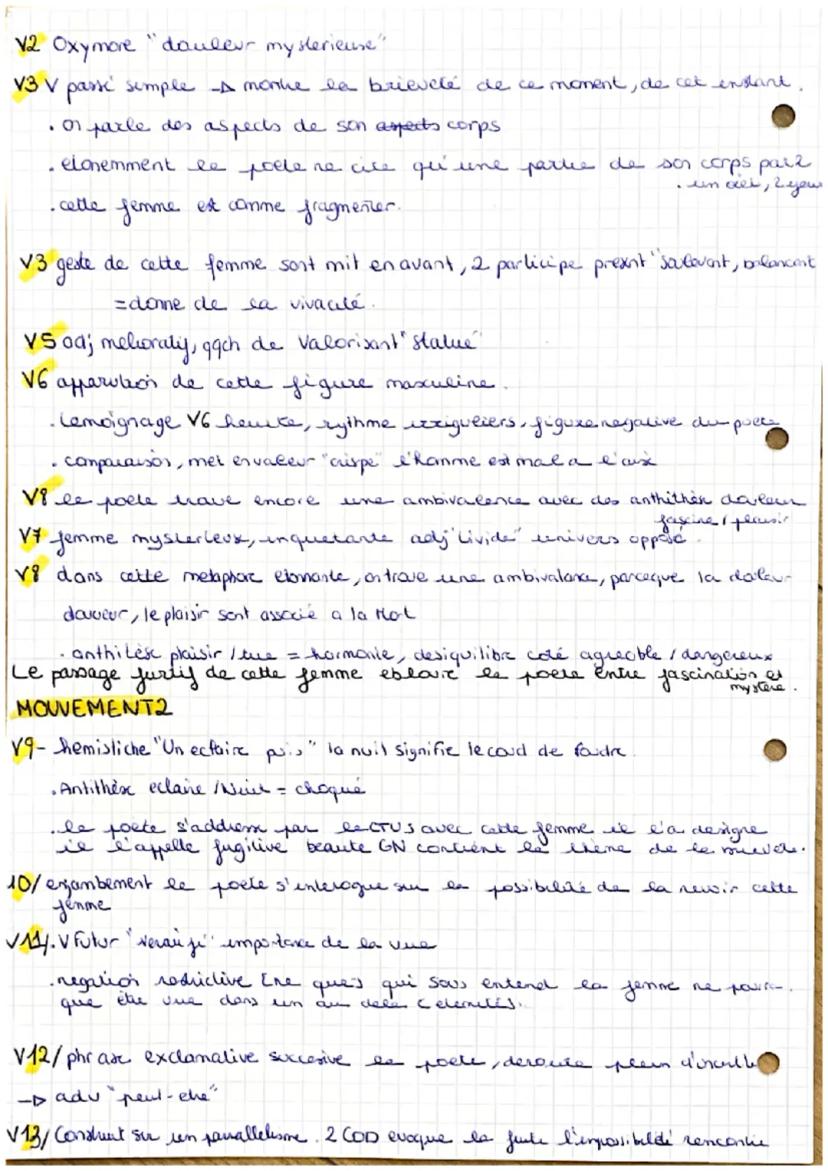 V2 Oxymore "douleur mysterieuse"
V3 V passé simple → montre la brieveté de ce moment, de cet instant.
. on parle des aspects de son aspects corps
. etonemment le poete ne cite qu'une partie de son corps par 2
. un oeil, 2 yeux
. cette femme est comme fragmenter.
V3 geste de cette femme sont mit en avant, 2 participe present "soulevant, balancent
= donne de la vivacité.
V5 adj melioratif, qqch de valorisant "statue"
V6 apparution de cette figure masculine.
. temoignage V6 heurte, rythme irriguliers, figure negative du poete
. comparaison, met en valeur "crispe" l'homme est mal a l'aise
V8 le poete trouve encore une ambivalence avec des anthithese douleur
fascine / plaisir
V7 femme mysterieux, inquetante adj "livide" univers opposé.
V8 dans cette metaphore etonnante, on trouve une ambivalance, parceque la douleur
douceur, le plaisir sont associé a la Mot
. anthitèse plaisir / tue = harmonie, desiquilibre coté agreable / dangereux
Le passage furtif de cette femme eblouie le poete entre fascination et
mystere.
MOUVEMENT2
V9- hemistiche "Un eclaire puis" la nuit signifie le coud de foudre.
. Antithèse eclaire / Nuit = choqué
. le poete s'addresse par le [TU] avec cette femme il l'a designe
il l'appelle fugitive beaute GN contient le thème de la
10/ enjambement le poete s'interogue sur la possibilité de la revoir cette
femme
V11/. V Futur "verai je" importance de la vue
. negation restrictive [ne que] qui sous entend la femme ne pourra
que etre vue dans un au dela (eternités).
V12/ phrase exclamative succesive le poete, deroute plein
→ adv "peut-etre"
V13/ Construit sur un parallelisme. 2 COD evoque la fuite l'impossibilité rencontre